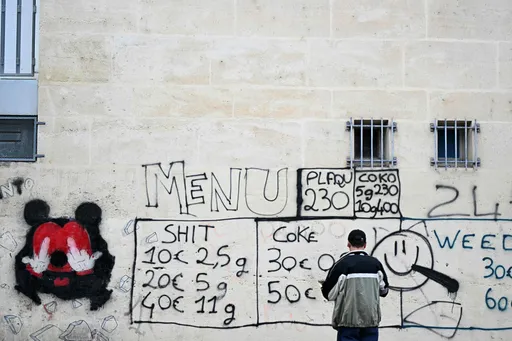 MENU
PLAQU
230
COKO
5g 230
10g 400
24
SHIT
10€ 2,5g
20€ 5g
40€ 11g
COKE
30€
50€
WEED
30€
60€